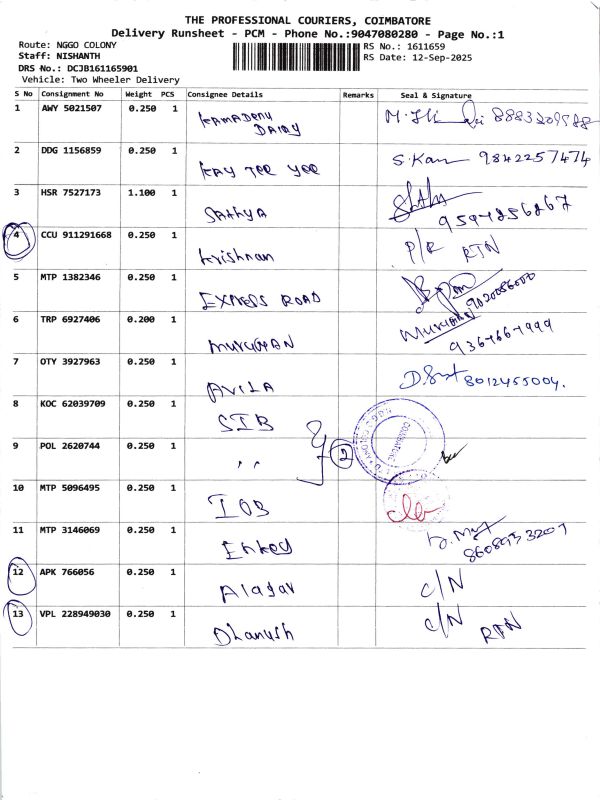 THE PROFESSIONAL COURIERS, COIMBATORE
Delivery Runsheet - PCM - Phone No.:9047080280 - Page No.:1
Route: NGGO COLONY
RS No.: 1611659
Staff: NISHANTH
RS Date: 12-Sep-2025
DRS No.: DCJB161165901
Vehicle: Two Wheeler Delivery
S No Consignment No Weight PCS Consignee Details Remarks Seal & Signature
1 AWY 5021507 0.250 1 KAMADENU DAIRY
2 DDG 1156859 0.250 1 KAY TEE YEE S.Kan 9842257474
3 HSR 7527173 1.100 1 SATHYA
4 CCU 911291668 0.250 1 Krishnan P/R RTN
5 MTP 1382346 0.250 1 EXPRESS ROAD
6 TRP 6927406 0.200 1 MURUGAN MURUGAN
7 OTY 3927963 0.250 1 AVILA 8012455004.
8 KOC 62039709 0.250 1 SIB
9 POL 2620744 0.250 1 ,, 2
10 MTP 5096495 0.250 1 IOB
11 MTP 3146069 0.250 1
12 APK 766056 0.250 1 Alagar C/N
13 VPL 228949030 0.250 1 Dhanush C/N RTN